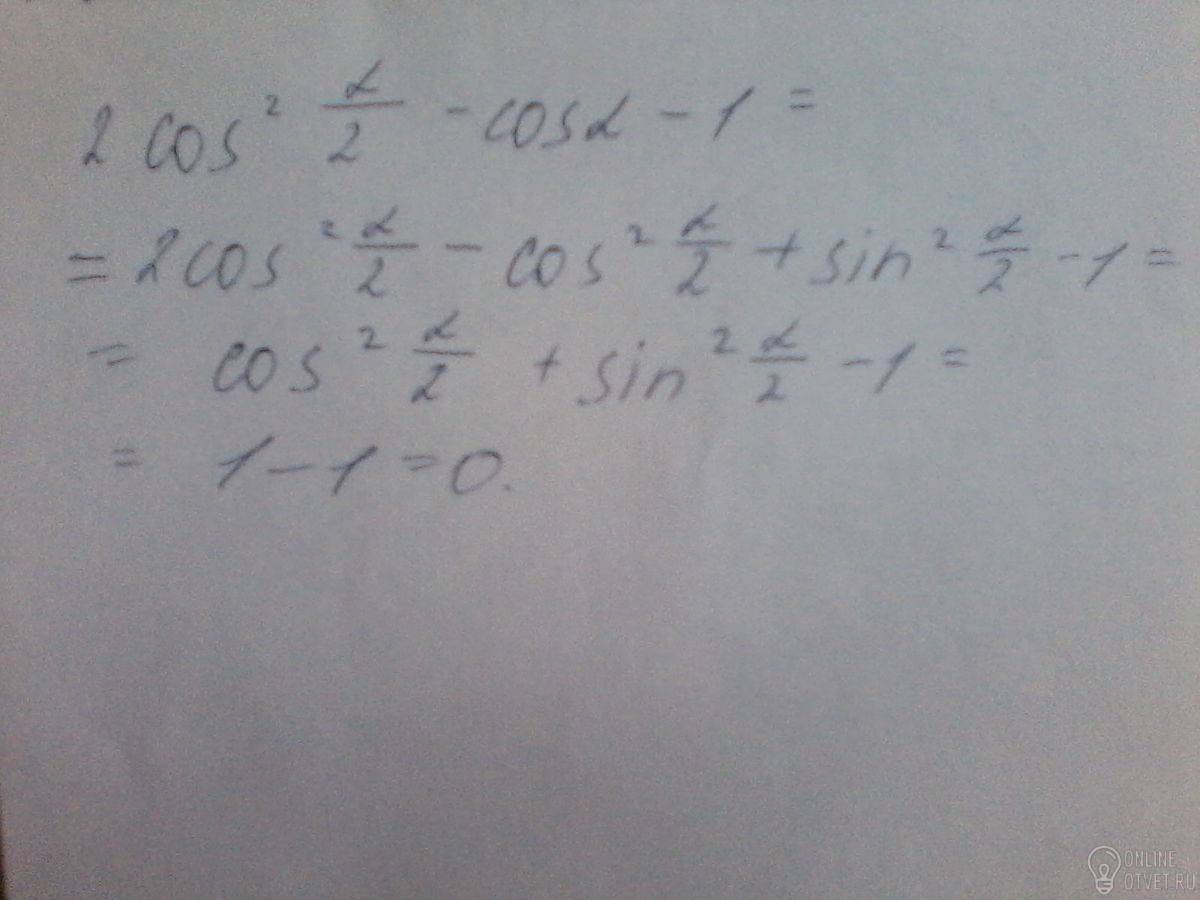 2 cos² α/2 - cosα - 1 =
= 2cos² α/2 - cos² α/2 + sin² α/2 - 1 =
= cos² α/2 + sin² α/2 - 1 =
= 1 - 1 = 0.
ONLINE
OTVET.RU